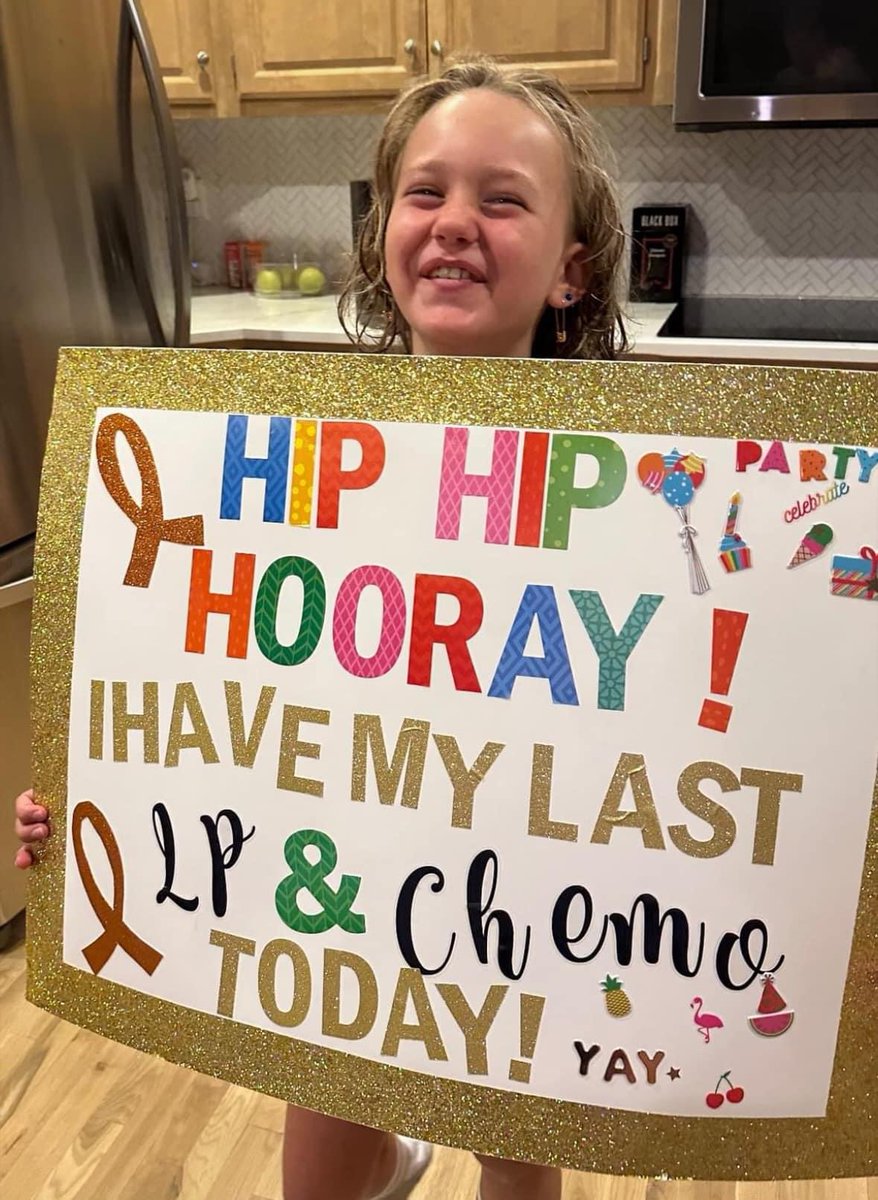 BLACK BOX
HIP HIP
PARTY
celebrate
HOORAY!
I HAVE MY LAST
LP & Chemo
TODAY!
YAY